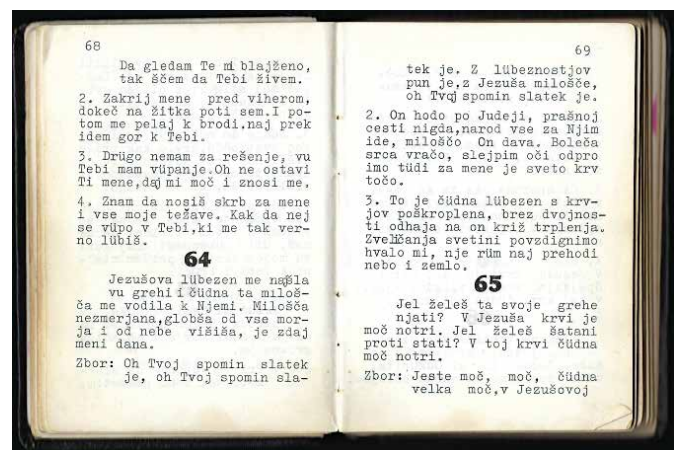 68
Da gledam Te mi blajženo,
tak ščem da Tebi živem.
2. Zakrij mene pred viherom,
dokeč na žitka poti sem.I po-
tom me pelaj k brodi.naj prek
idem gor k Tebi.
3. Drügo nemam za rešenje, vu
Tebi mam vüpanje.Oh ne ostavi
Ti mene,daj mi moč i znosi me.
4. Znam da nosiš skrb za mene
i vse moje težave. Kak da nej
se vüpo v Tebi,ki me tak ver-
no lübiš.
64
Jezušova lübezen me najšla
vu grehi i čüdna ta miloš-
ča me vodila k Njemi. Milošča
nezmerjana,globša od vse mor-
ja i od nebe višiša, je zdaj
meni dana.
Zbor: Oh Tvoj spomin slatek
je, oh Tvoj spomin sla-
69
tek je. Z lübeznostjov
pun je,z Jezuša milošče,
oh Tvoj spomin slatek je.
2. On hodo po Judeji, prašnoj
cesti nigda,narod vse za Njim
ide, miloščo On dava. Boleča
srca vračo, slejpim oči odpro
imo tüdi za mene je sveto krv
točo.
3. To je čüdna lübezen s krv-
jov poškroplena, brez dvojnos-
ti odhaja na on križ trplenja.
Zveličanja svetini povzdignimo
hvalo mi, nje rüm naj prehodi
nebo i zemlo.
65
Jel želeš ta svoje grehe
njati? V Jezuša krvi je
moč notri. Jel želeš šatani
proti stati? V toj krvi čüdna
moč notri.
Zbor: Jeste moč, moč, čüdna
velka moč,v Jezušovoj